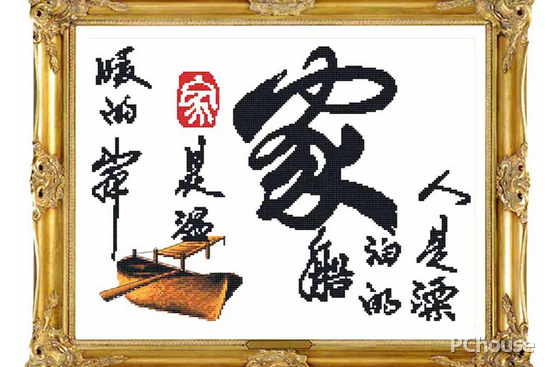 家
人是漂
泊的
船
家
是温
暖的
岸
PChouse